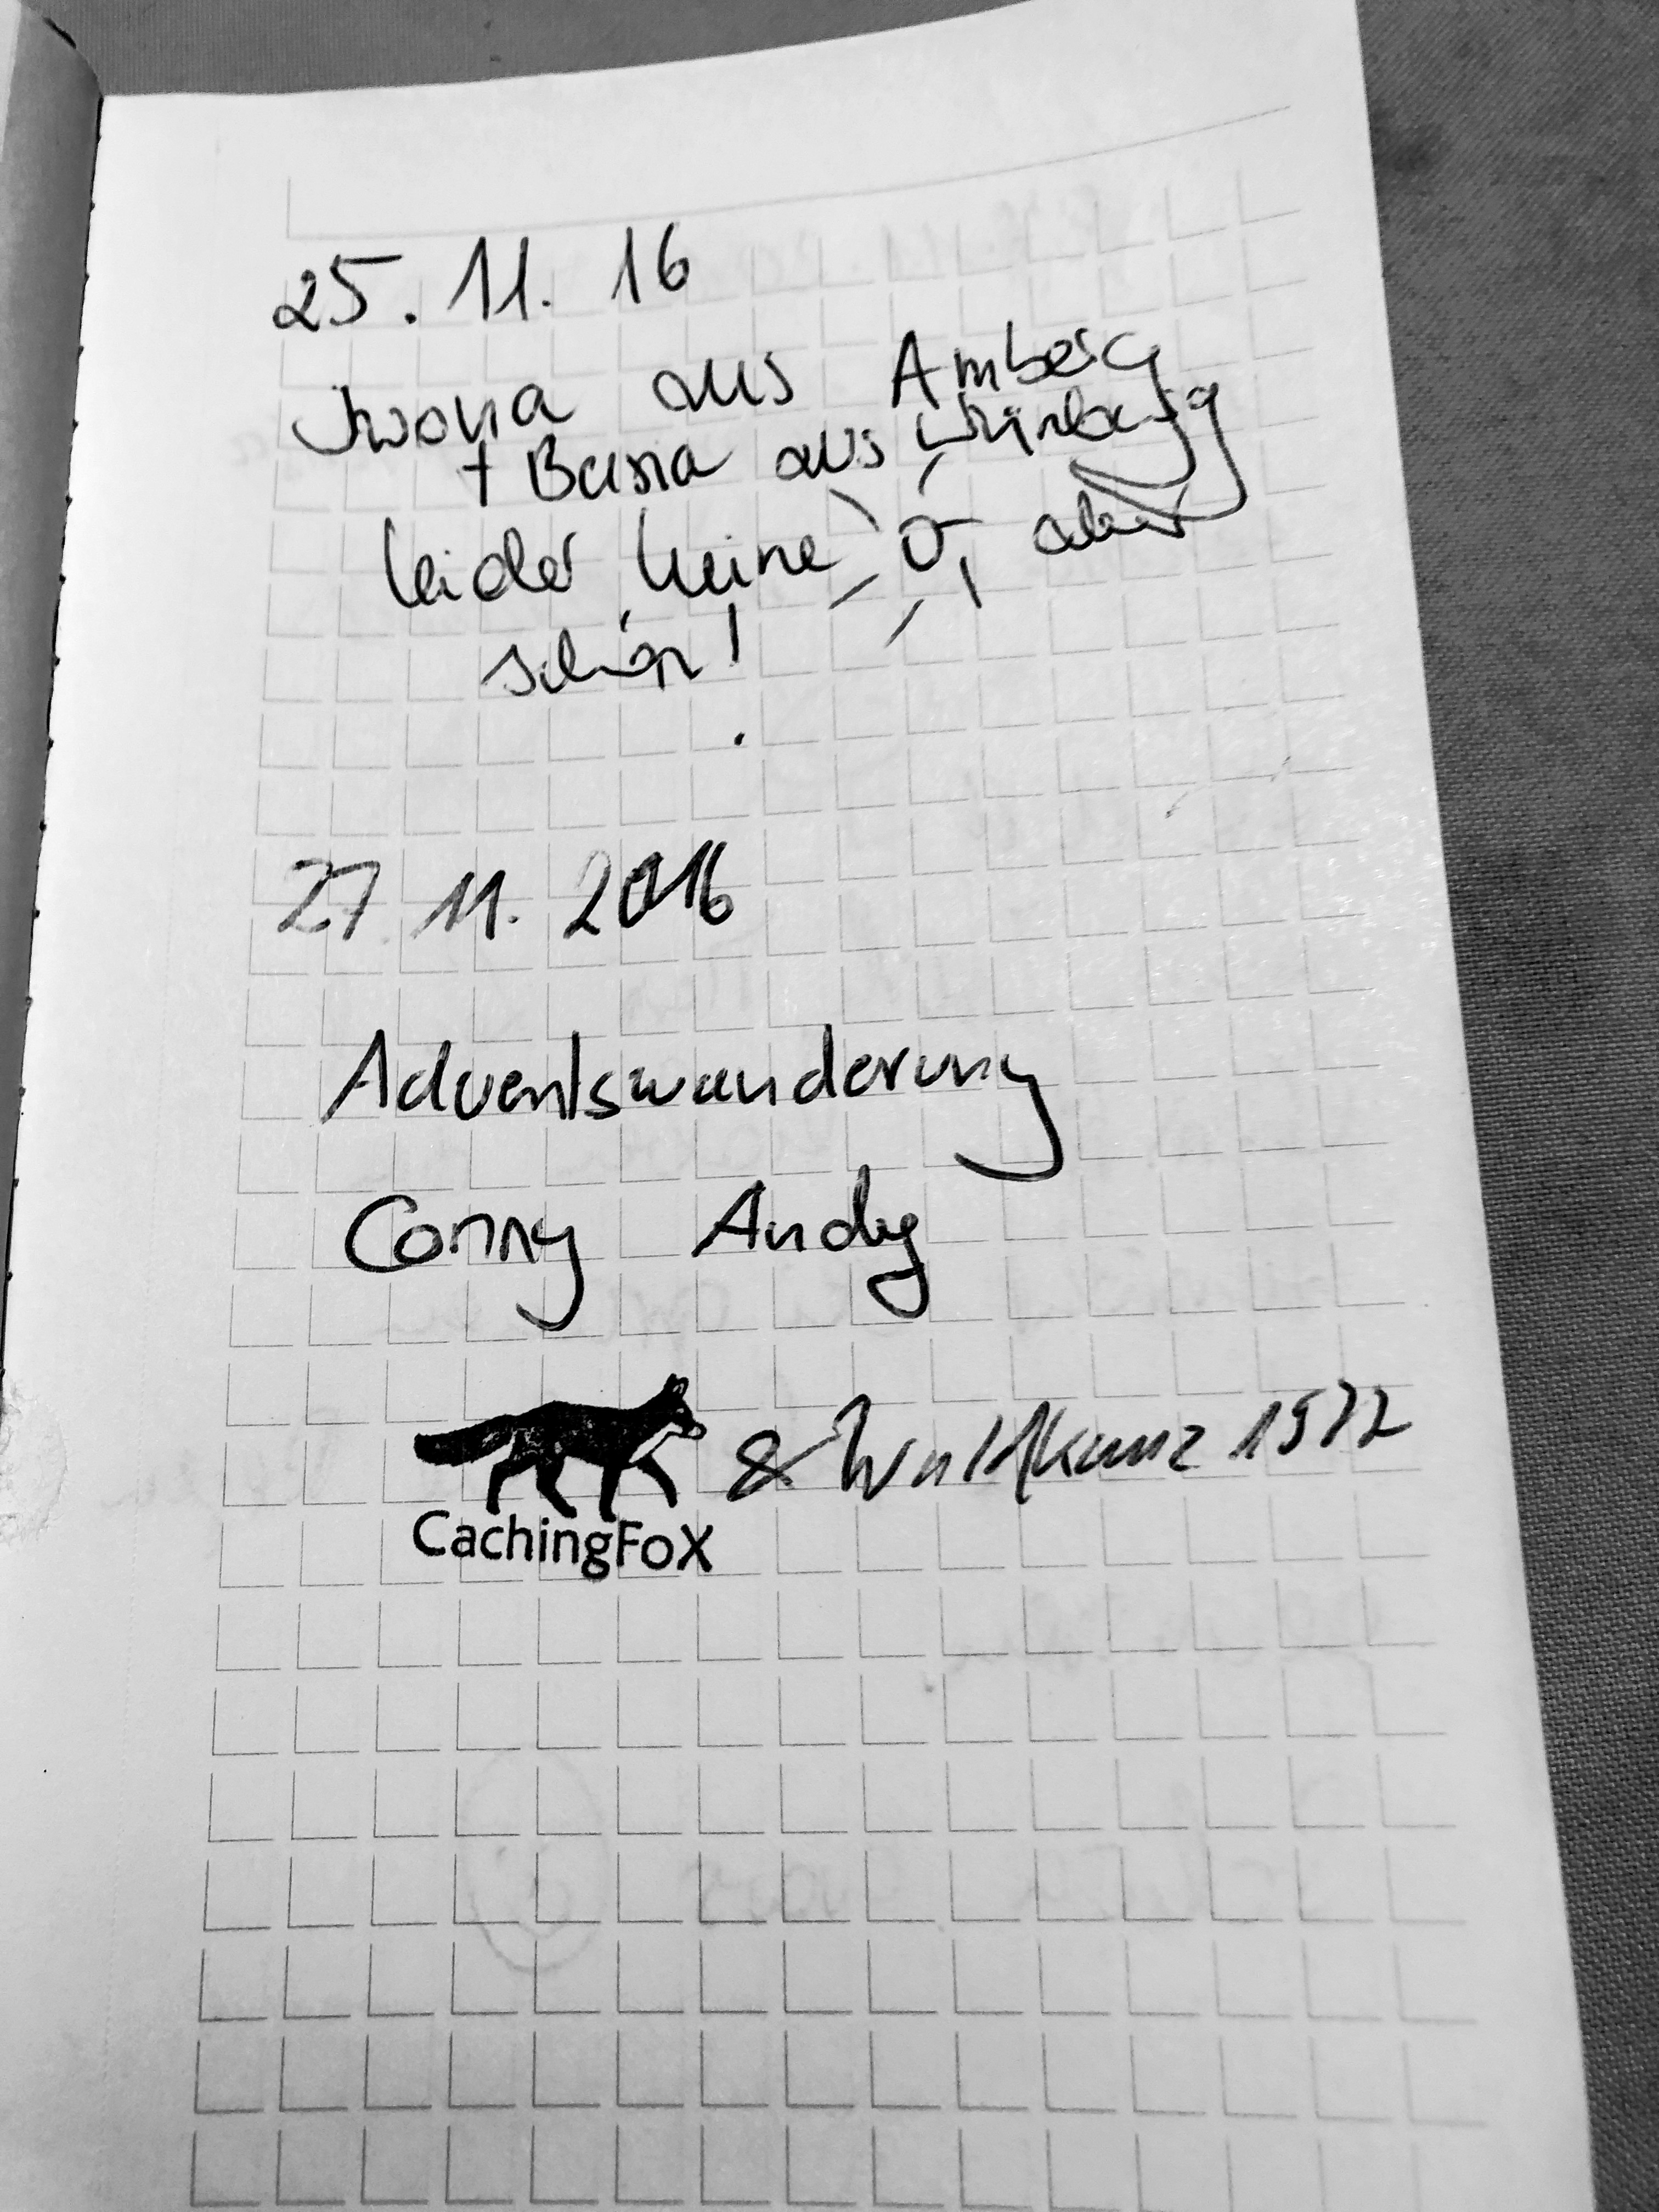 25.11.16
Iwona aus Amberg
+ Basia aus Nürnberg
leider keine , aber
schön!
27.11.2016
Adventswanderung
Conny Andy
& Waldkauz 1972
CachingFoX